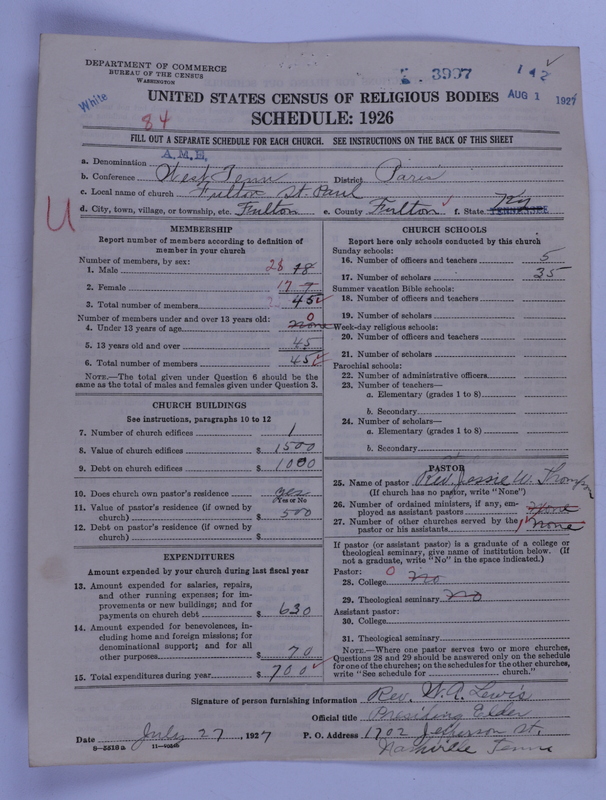 DEPARTMENT OF COMMERCE
BUREAU OF THE CENSUS
WASHINGTON
3997
142
White
UNITED STATES CENSUS OF RELIGIOUS BODIES
AUG 1 1927
84
SCHEDULE: 1926
FILL OUT A SEPARATE SCHEDULE FOR EACH CHURCH. SEE INSTRUCTIONS ON THE BACK OF THIS SHEET
a. Denomination A.M.E.
b. Conference West Tenn District Paris
c. Local name of church Fulton St. Paul
d. City, town, village, or township, etc. Fulton e. County Fulton f. State Ky TENNESSEE
U
MEMBERSHIP
Report number of members according to definition of
member in your church
Number of members, by sex:
1. Male 28 18
2. Female 17 7
3. Total number of members 45
Number of members under and over 13 years old:
4. Under 13 years of age 0 none
5. 13 years old and over 45
6. Total number of members 45
NOTE.—The total given under Question 6 should be the
same as the total of males and females given under Question 3.
CHURCH BUILDINGS
See instructions, paragraphs 10 to 12
7. Number of church edifices 1
8. Value of church edifices $ 1500
9. Debt on church edifices $ 1000
10. Does church own pastor's residence yes
Yes or No
11. Value of pastor's residence (if owned by
church) $ 500
12. Debt on pastor's residence (if owned by
church) $
EXPENDITURES
Amount expended by your church during last fiscal year
13. Amount expended for salaries, repairs,
and other running expenses; for im-
provements or new buildings; and for
payments on church debt $ 630
14. Amount expended for benevolences, in-
cluding home and foreign missions; for
denominational support; and for all
other purposes $ 70
15. Total expenditures during year $ 700
CHURCH SCHOOLS
Report here only schools conducted by this church
Sunday schools:
16. Number of officers and teachers 5
17. Number of scholars 35
Summer vacation Bible schools:
18. Number of officers and teachers
19. Number of scholars
Week-day religious schools:
20. Number of officers and teachers
21. Number of scholars
Parochial schools:
22. Number of administrative officers
23. Number of teachers—
a. Elementary (grades 1 to 8)
b. Secondary
24. Number of scholars—
a. Elementary (grades 1 to 8)
b. Secondary
PASTOR
25. Name of pastor Rev. Jessie W. Thompson
(If church has no pastor, write "None")
26. Number of ordained ministers, if any, em-
ployed as assistant pastors none
27. Number of other churches served by the
pastor or his assistants 1 none
If pastor (or assistant pastor) is a graduate of a college or
theological seminary, give name of institution below. (If
not a graduate, write "No" in the space indicated.)
Pastor: 0
28. College no
29. Theological seminary no
Assistant pastor:
30. College
31. Theological seminary
NOTE.—Where one pastor serves two or more churches,
Questions 28 and 29 should be answered only on the schedule
for one of the churches; on the schedules for the other churches,
write "See schedule for church."
Signature of person furnishing information Rev. W. A. Lewis
Official title Presiding Elder
Date July 27, 1927 P. O. Address 1702 Jefferson St.
8-5518a
Nashville Tenn